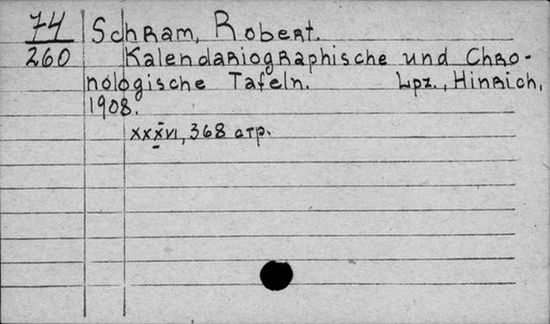 74 Schram, Robert.
260 Kalendariographische und Chro-
nologische Tafeln. Lpz., Hinrich,
1908.
XXXVI, 368 стр.